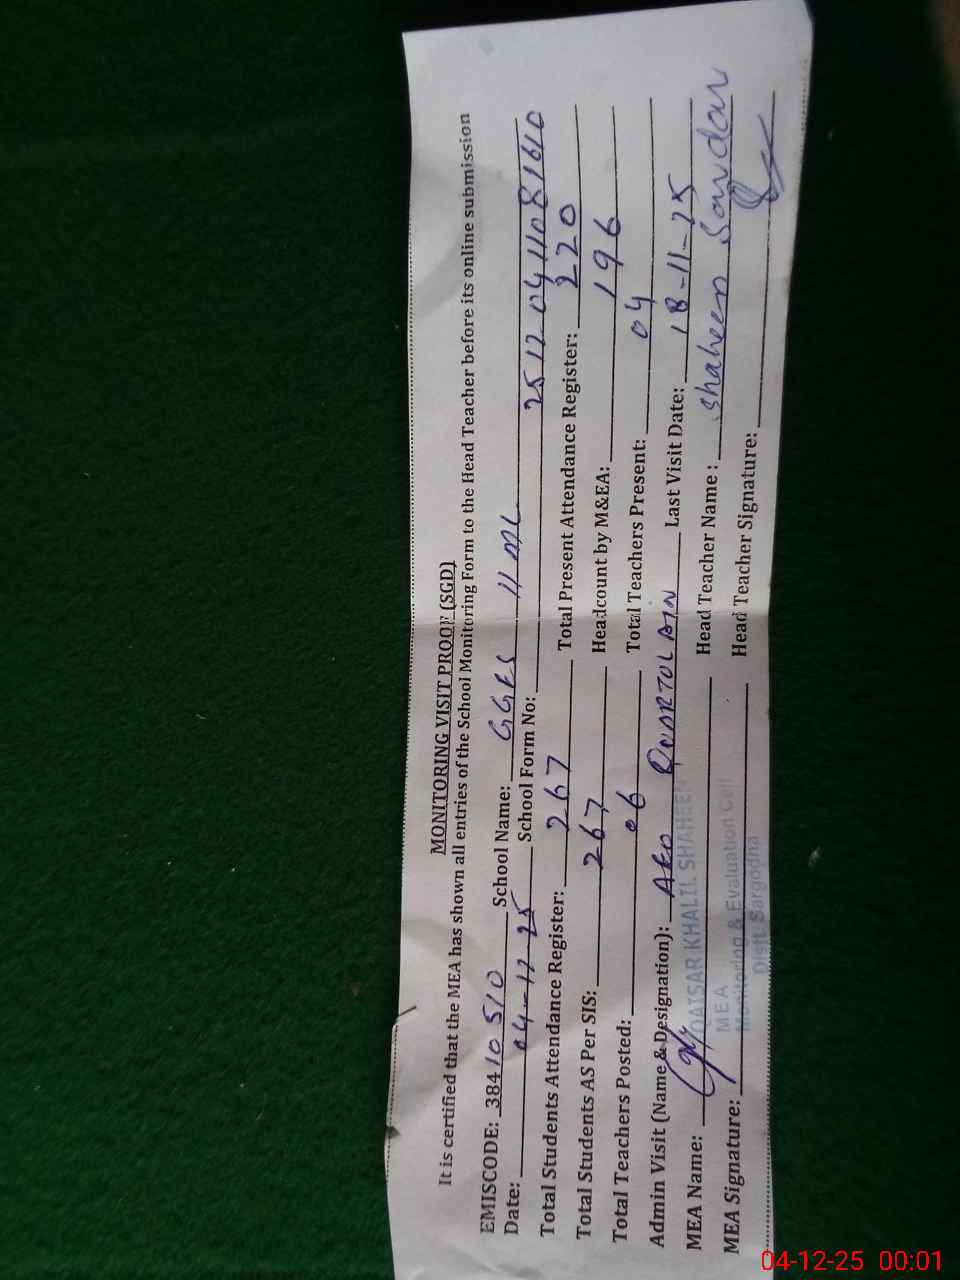 MONITORING VISIT PROOF (SGD)
It is certified that the MEA has shown all entries of the School Monitoring Form to the Head Teacher before its online submission
EMISCODE: 38410510 School Name: GGES 11 ML
Date: 04-12-25 School Form No: 25 12 04 11081610
Total Students Attendance Register: 267 Total Present Attendance Register: 220
Total Students AS Per SIS: 267 Headcount by M&EA: 196
Total Teachers Posted: 06 Total Teachers Present: 04
Admin Visit (Name & Designation): AEO QUARTULAIN Last Visit Date: 18-11-25
MEA Name: QAISAR KHALIL SHAHEEN Head Teacher Name: Shaheen Sardar
MEA
MEA Signature: Monitoring & Evaluation Cell Head Teacher Signature:
Distt. Sargodha
04-12-25 00:01